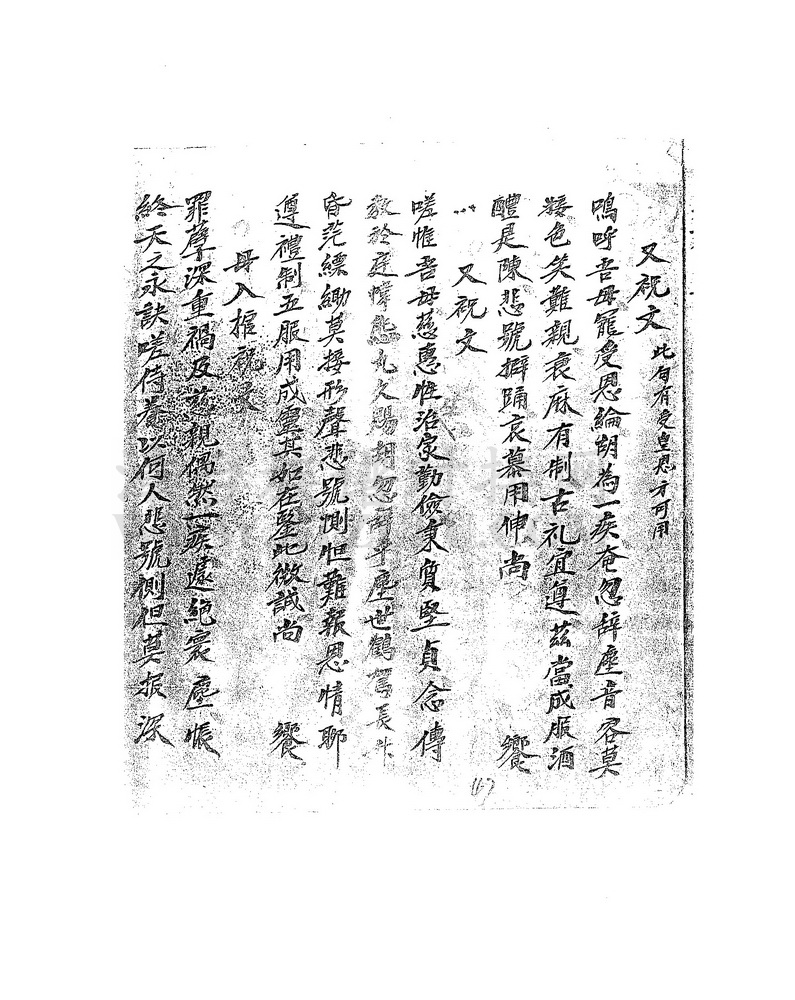 又祝文 此句有受皇恩方可用
嗚呼吾母寵受恩綸胡為一疾奄忽辭塵音容莫
接色笑難親衰麻有制古礼宜遵茲當成服酒
醴是陳悲號擗踊哀慕用伸尚 饗
又祝文
嗟惟吾母慈惠性治家勤儉秉質堅貞念傳
教於庭幃熊丸久賜胡忽辭乎塵世鶴駕
昏茫縹緲莫接形聲悲號惻怛難報恩情聊
遵禮制五服用成靈其如在鑒此微誠尚 饗
母入棺祝文
罪孽深重禍及慈親偶然一疾遽絕寰塵悵
終天之永訣嗟侍養以何人悲號惻怛莫报深